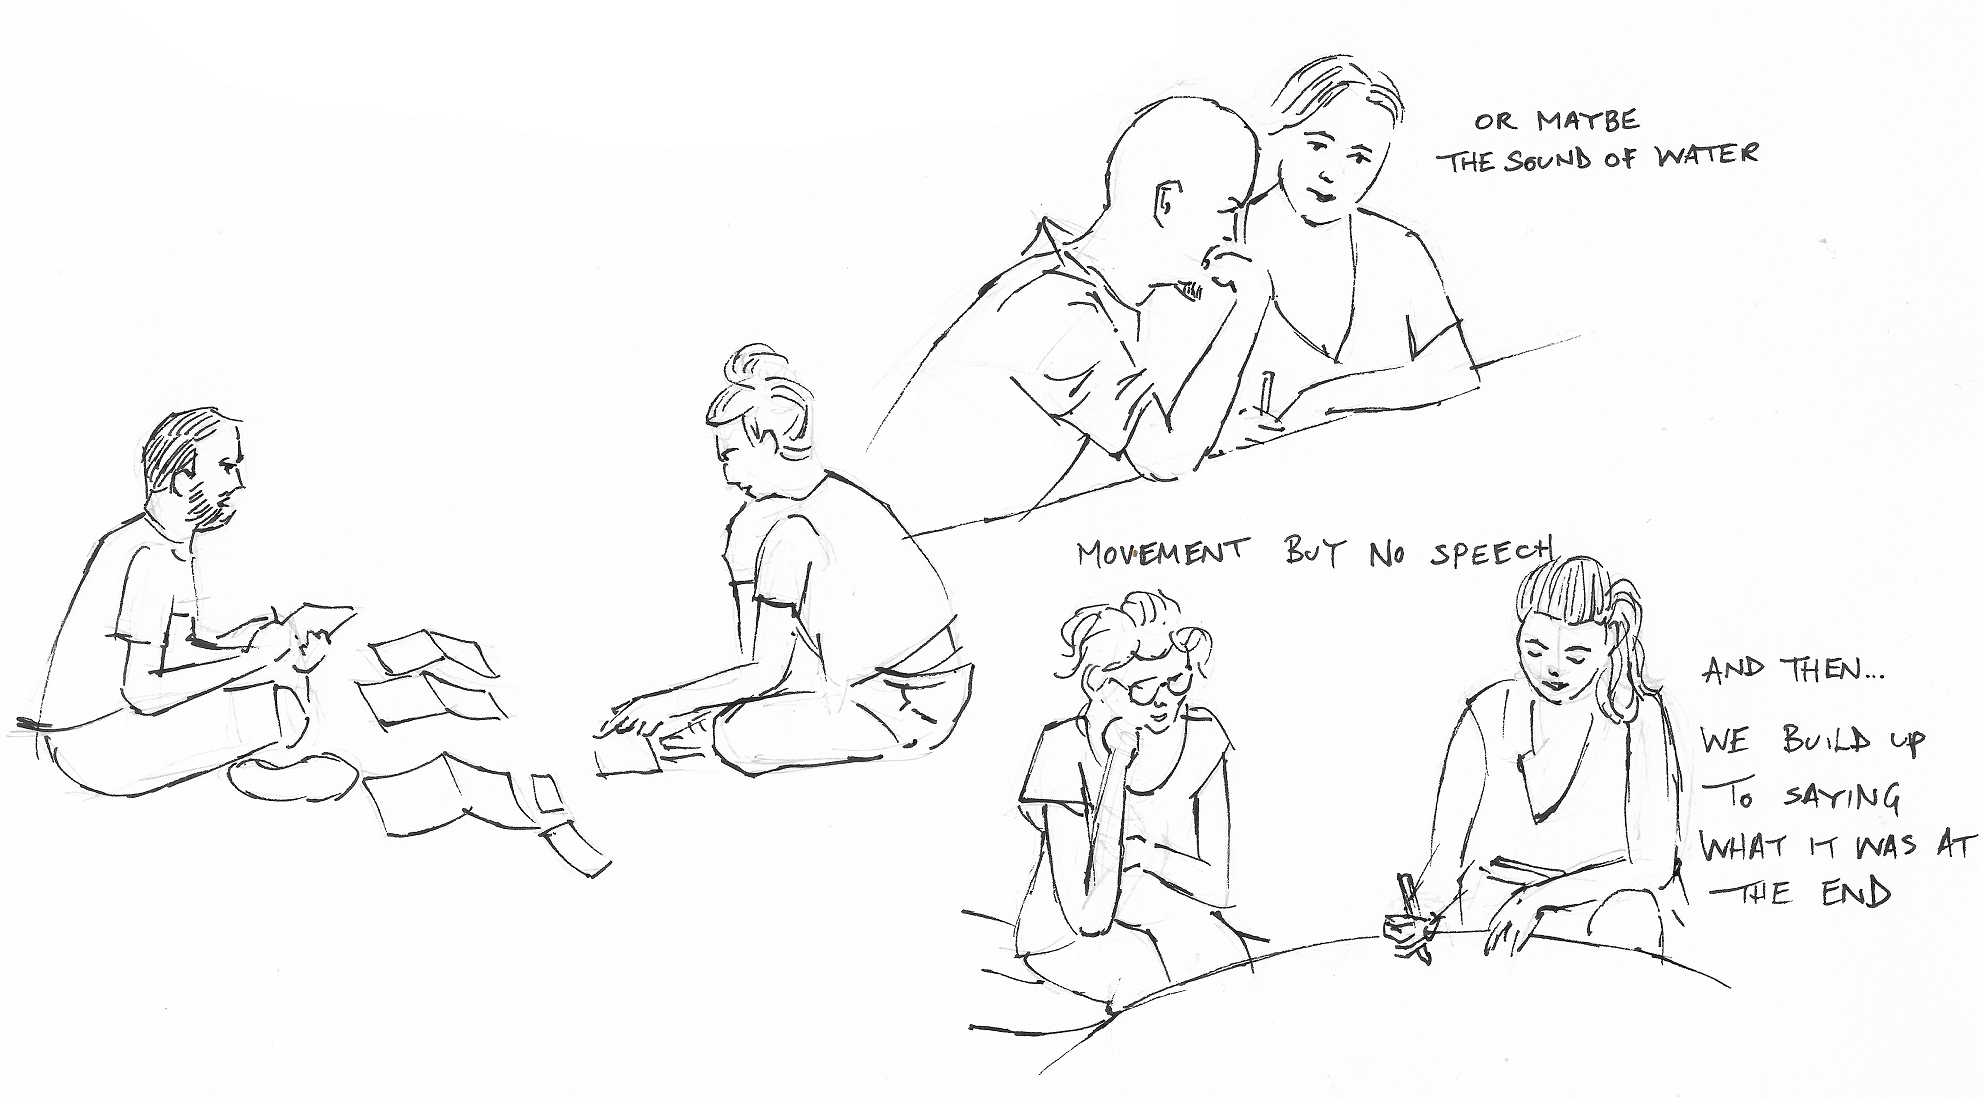 OR MAYBE
THE SOUND OF WATER
MOVEMENT BUT NO SPEECH
AND THEN...
WE BUILD UP
TO SAYING
WHAT IT WAS AT
THE END